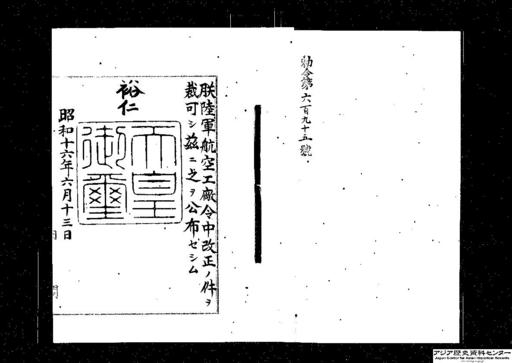 勅令第六百九十五號
朕陸軍航空工廠令中改正ノ件ヲ
裁可シ茲ニ之ヲ公布セシム
裕仁
天皇
御璽
昭和十六年六月十三日
アジア歴史資料センター
Japan Center for Asian Historical Records